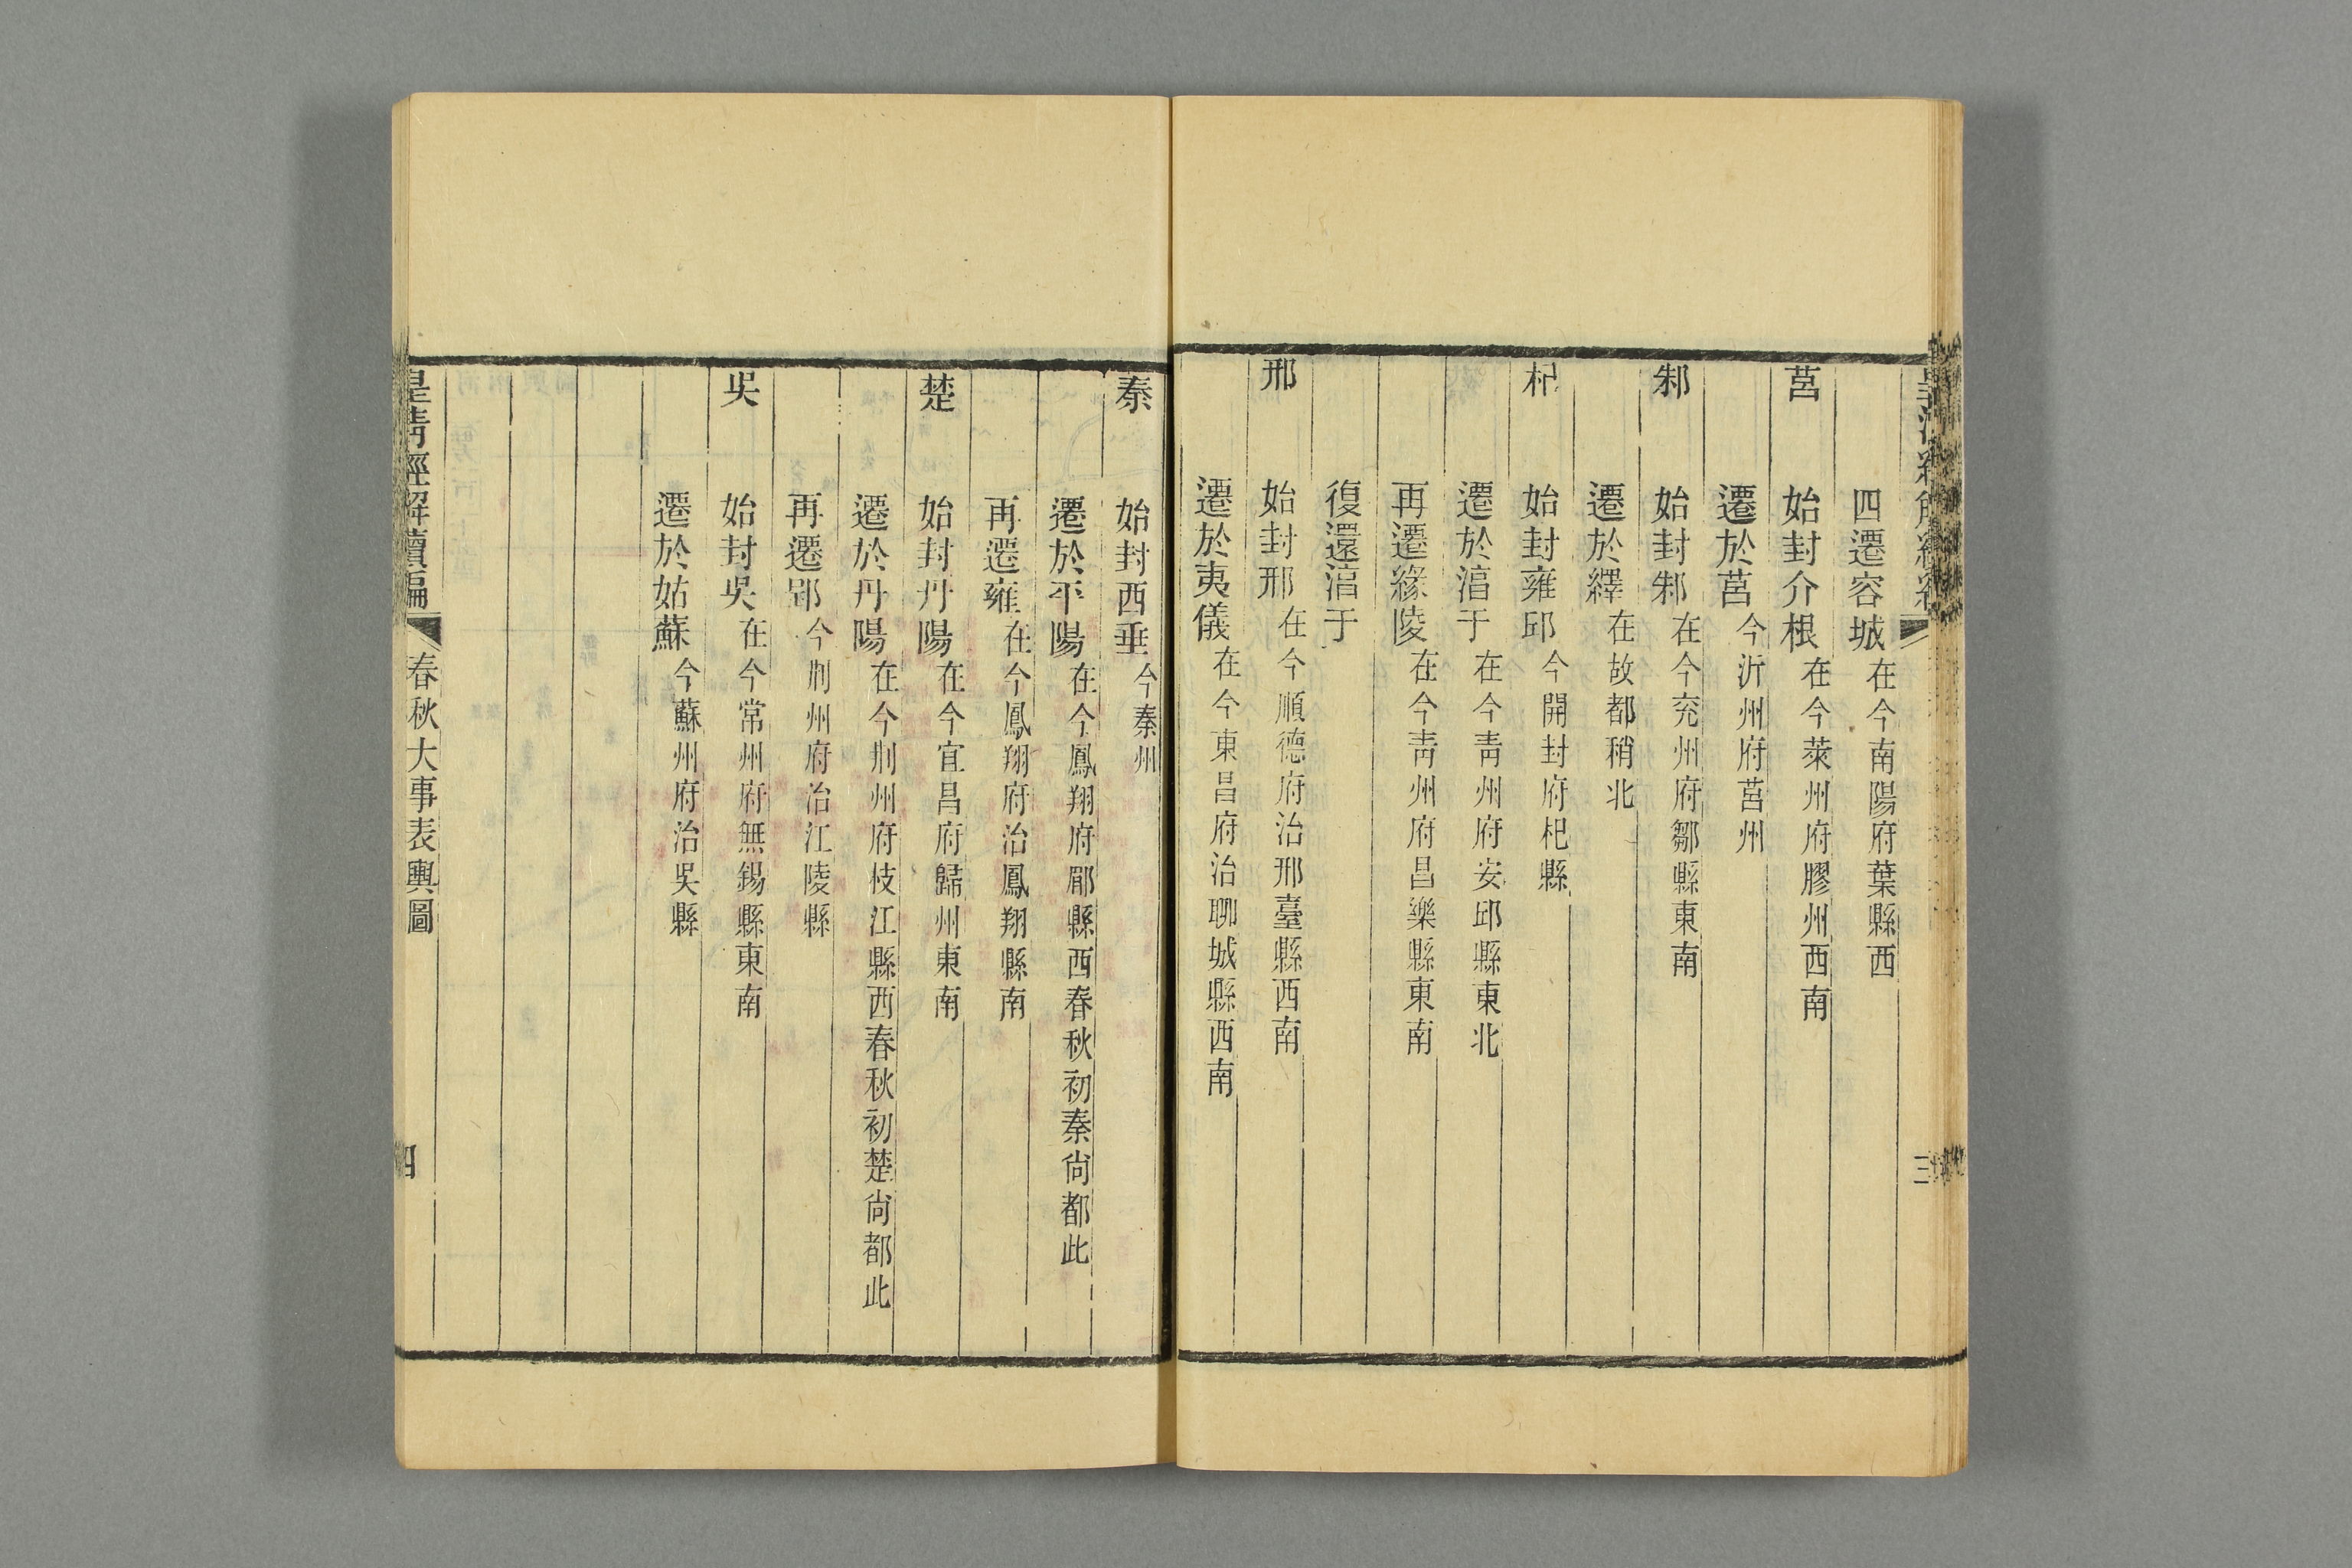 四遷容城在今南陽府葉縣西
莒　始封介根在今萊州府膠州西南
遷於莒今沂州府莒州
邾　始封邾在今兖州府鄒縣東南
遷於繹在故都稍北
杞　始封雍邱今開封府杞縣
遷於淳于在今靑州府安邱縣東北
再遷緣陵在今靑州府昌樂縣東南
復還淳于
邢　始封邢在今順德府治邢臺縣西南
遷於夷儀在今東昌府治聊城縣西南
三
秦　始封西垂今秦州
遷於平陽在今鳳翔府郿縣西春秋初秦尙都此
再遷雍在今鳳翔府治鳳翔縣南
楚　始封丹陽在今宜昌府歸州東南
遷於丹陽在今荆州府枝江縣西春秋初楚尙都此
再遷郢今荆州府治江陵縣
吳　始封吳在今常州府無錫縣東南
遷於姑蘇今蘇州府治吳縣
皇淸經解續編　春秋大事表輿圖　四